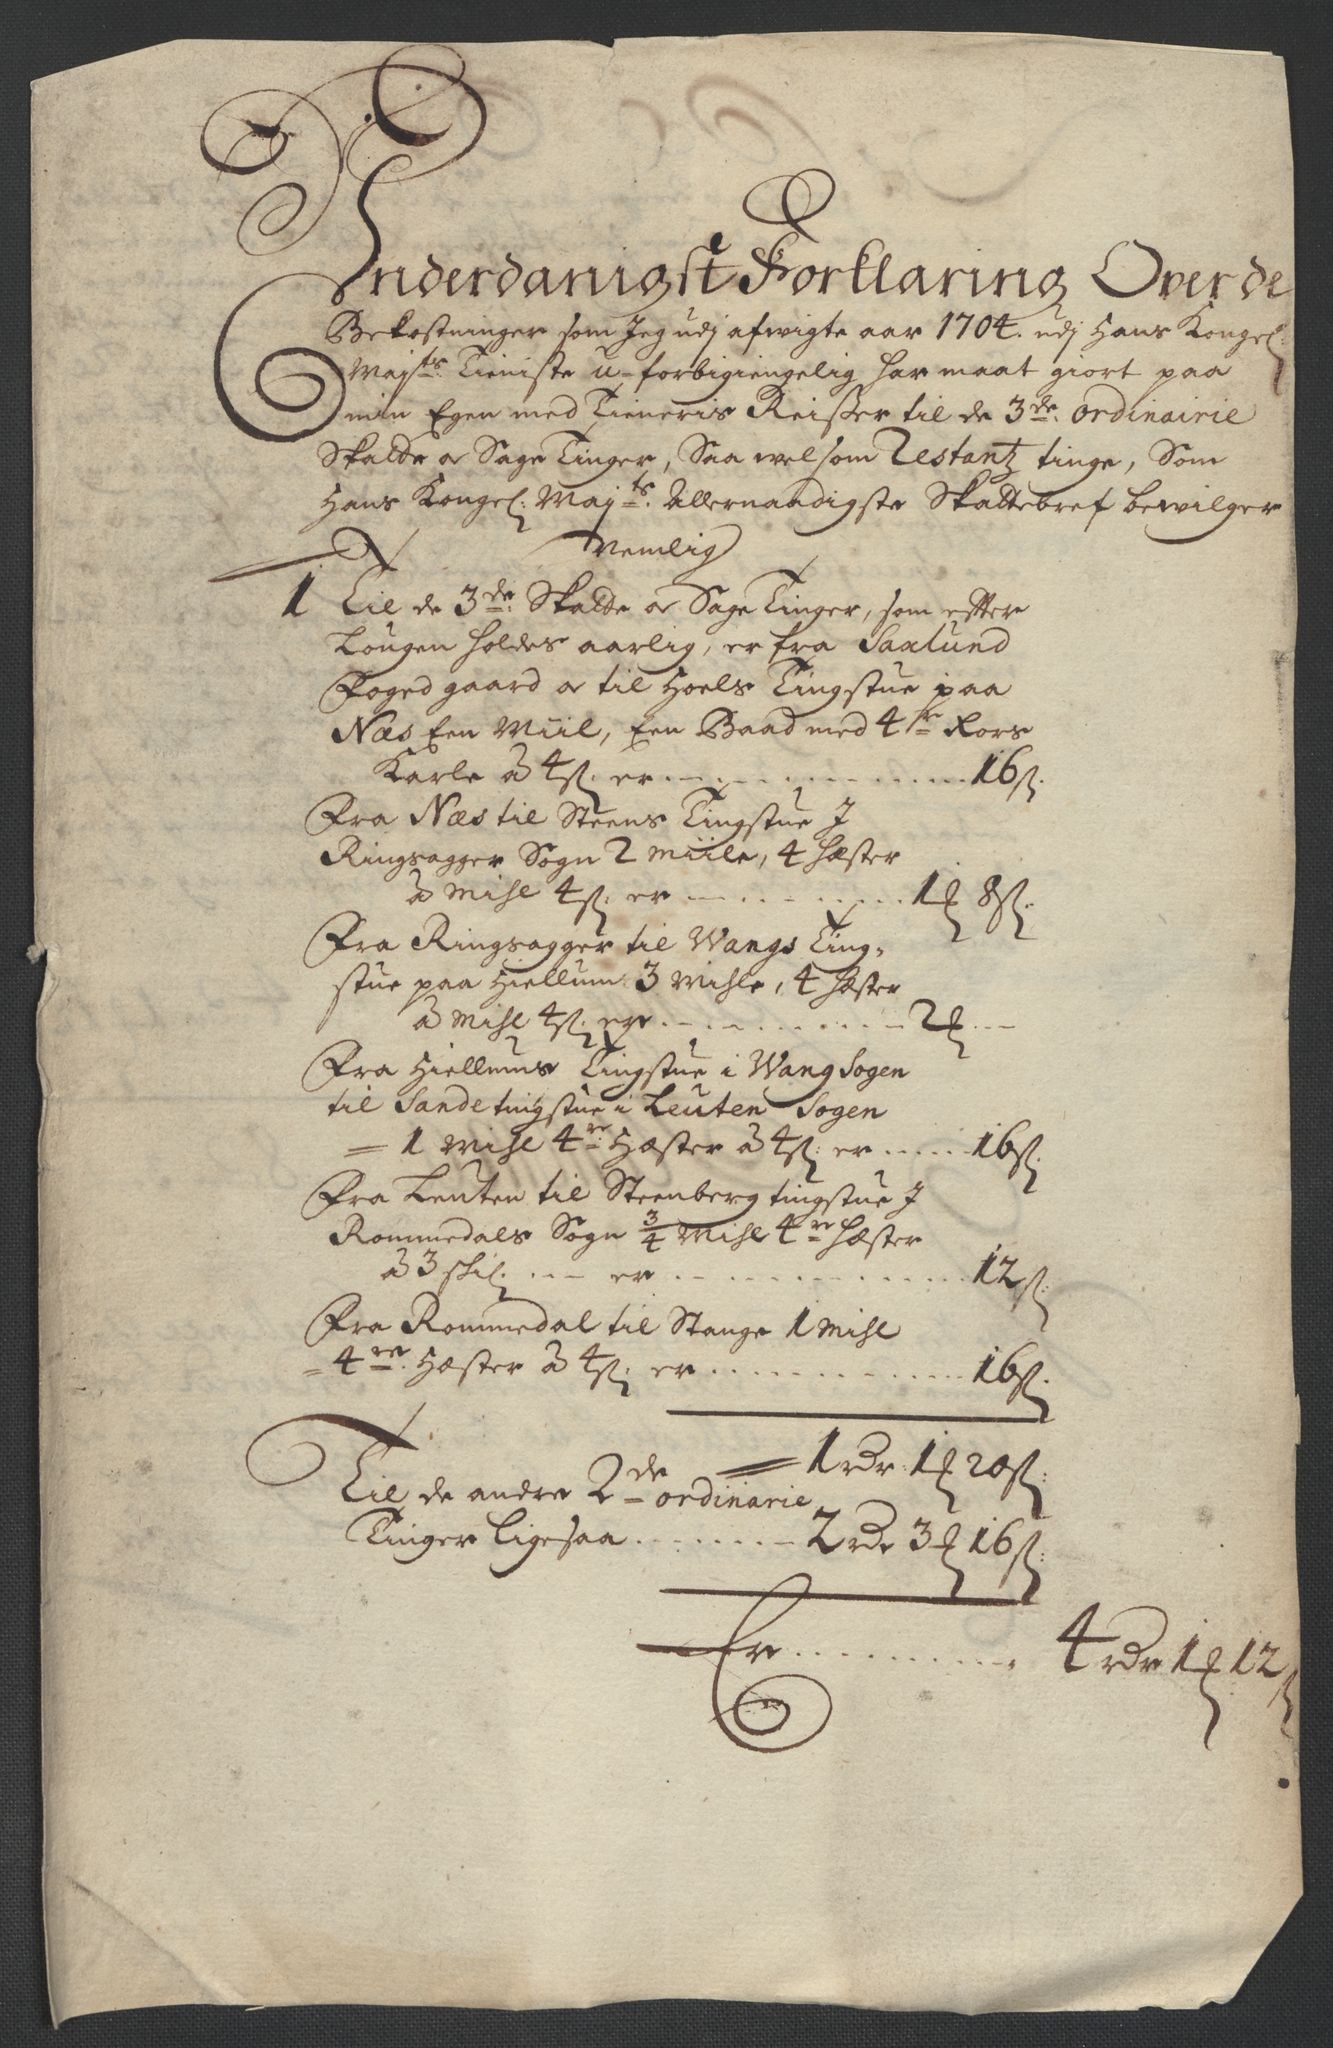 Underdanigst Forklaring Over de
Bekostninger som Jeg udj afwigte aar 1704. udj Hans Kongel:
Majts: Tieniste u-forbigiengelig har maat giort paa
min Egen med Tieneris Reisser til de 3de: ordinairie
Skatde or Sage Tinger, Saa wel som Restantz tinge, Som
Hans Kongel: Majts: Allernaadigste Skattebref bewilger
Nemlig
1 Til de 3de: Skatde or Sage Tinger, som effter
Lougen holdes aarlig, er fra Saxlund
Foged gaard or til Hoels Tingstue paa
Næs Een Miil, Een Baad med 4re Rors
Karle â 4s; er ... 16s.
Fra Næs til Steens Tingstue J
Ringsagger Sogn 2 miile, 4 hæster
â mihl 4s; er ... 1 8s.
Fra Ringsagger til Wangs Ting-
stue paa Hiellum 3 Mihle, 4 hæster
â mihl 4s; er ... 2
Fra Hiellums Tingstue i Wang Sogen
til Sande tingstue i Leuten Sogen
= 1 Mihl 4re: Hæster â 4s; er ... 16s.
Fra Leuten til Steenberg tingstue J
Rommedals Sogn 3/4 Mihl 4re hæster
â 3 skil; ... er ... 12s.
Fra Rommedal til Stange 1 Mihl
= 4re: Hæster â 4s; er ... 16s.
= 1 rdr: 1 20s:
Til de andre 2de ordinarie
Tinger ligesaa ... 2 rdr 3 16s:
Er ... 4 rdr 1 12s